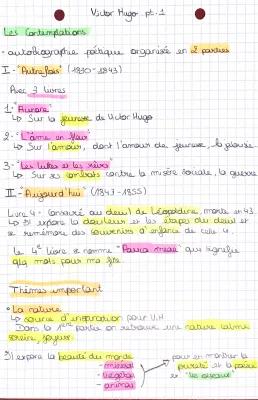 Victor Hugo pt.1
Les Contemplations
- autobiographie poétique organisée en 2 parties
I - "Autrefois" (1830-1843)
Avec 3 livres
1- "Aurore"
↳ Sur la jeunesse de Victor Hugo
2- "L'âme en fleur"
↳ Sur l'amour, dont l'amour de jeunesse, la jalousie
3- "Les luttes et les rêves"
↳ Sur ses combats contre la misère sociale, la guerre
II - "Aujourd'hui" (1843-1855)
Livre 4 - Consacré au deuil de Léopoldine, morte en 43
↳ Il explore la douleur et les étapes du deuil et
se remémore des souvenirs d'enfance de celle-ci.
Le 4e livre se nomme "Pauca meae" qui signifie
qlq mots pour ma fille
Thèmes important
• La nature
↳ source d'inspiration pour V.H
Dans la 1ère partie on retrouve une nature calme
sereine, joyeuse.
Il explore la beauté du monde
- minéral
- végétal
- animal
pour en montrer la
pureté et la poésie